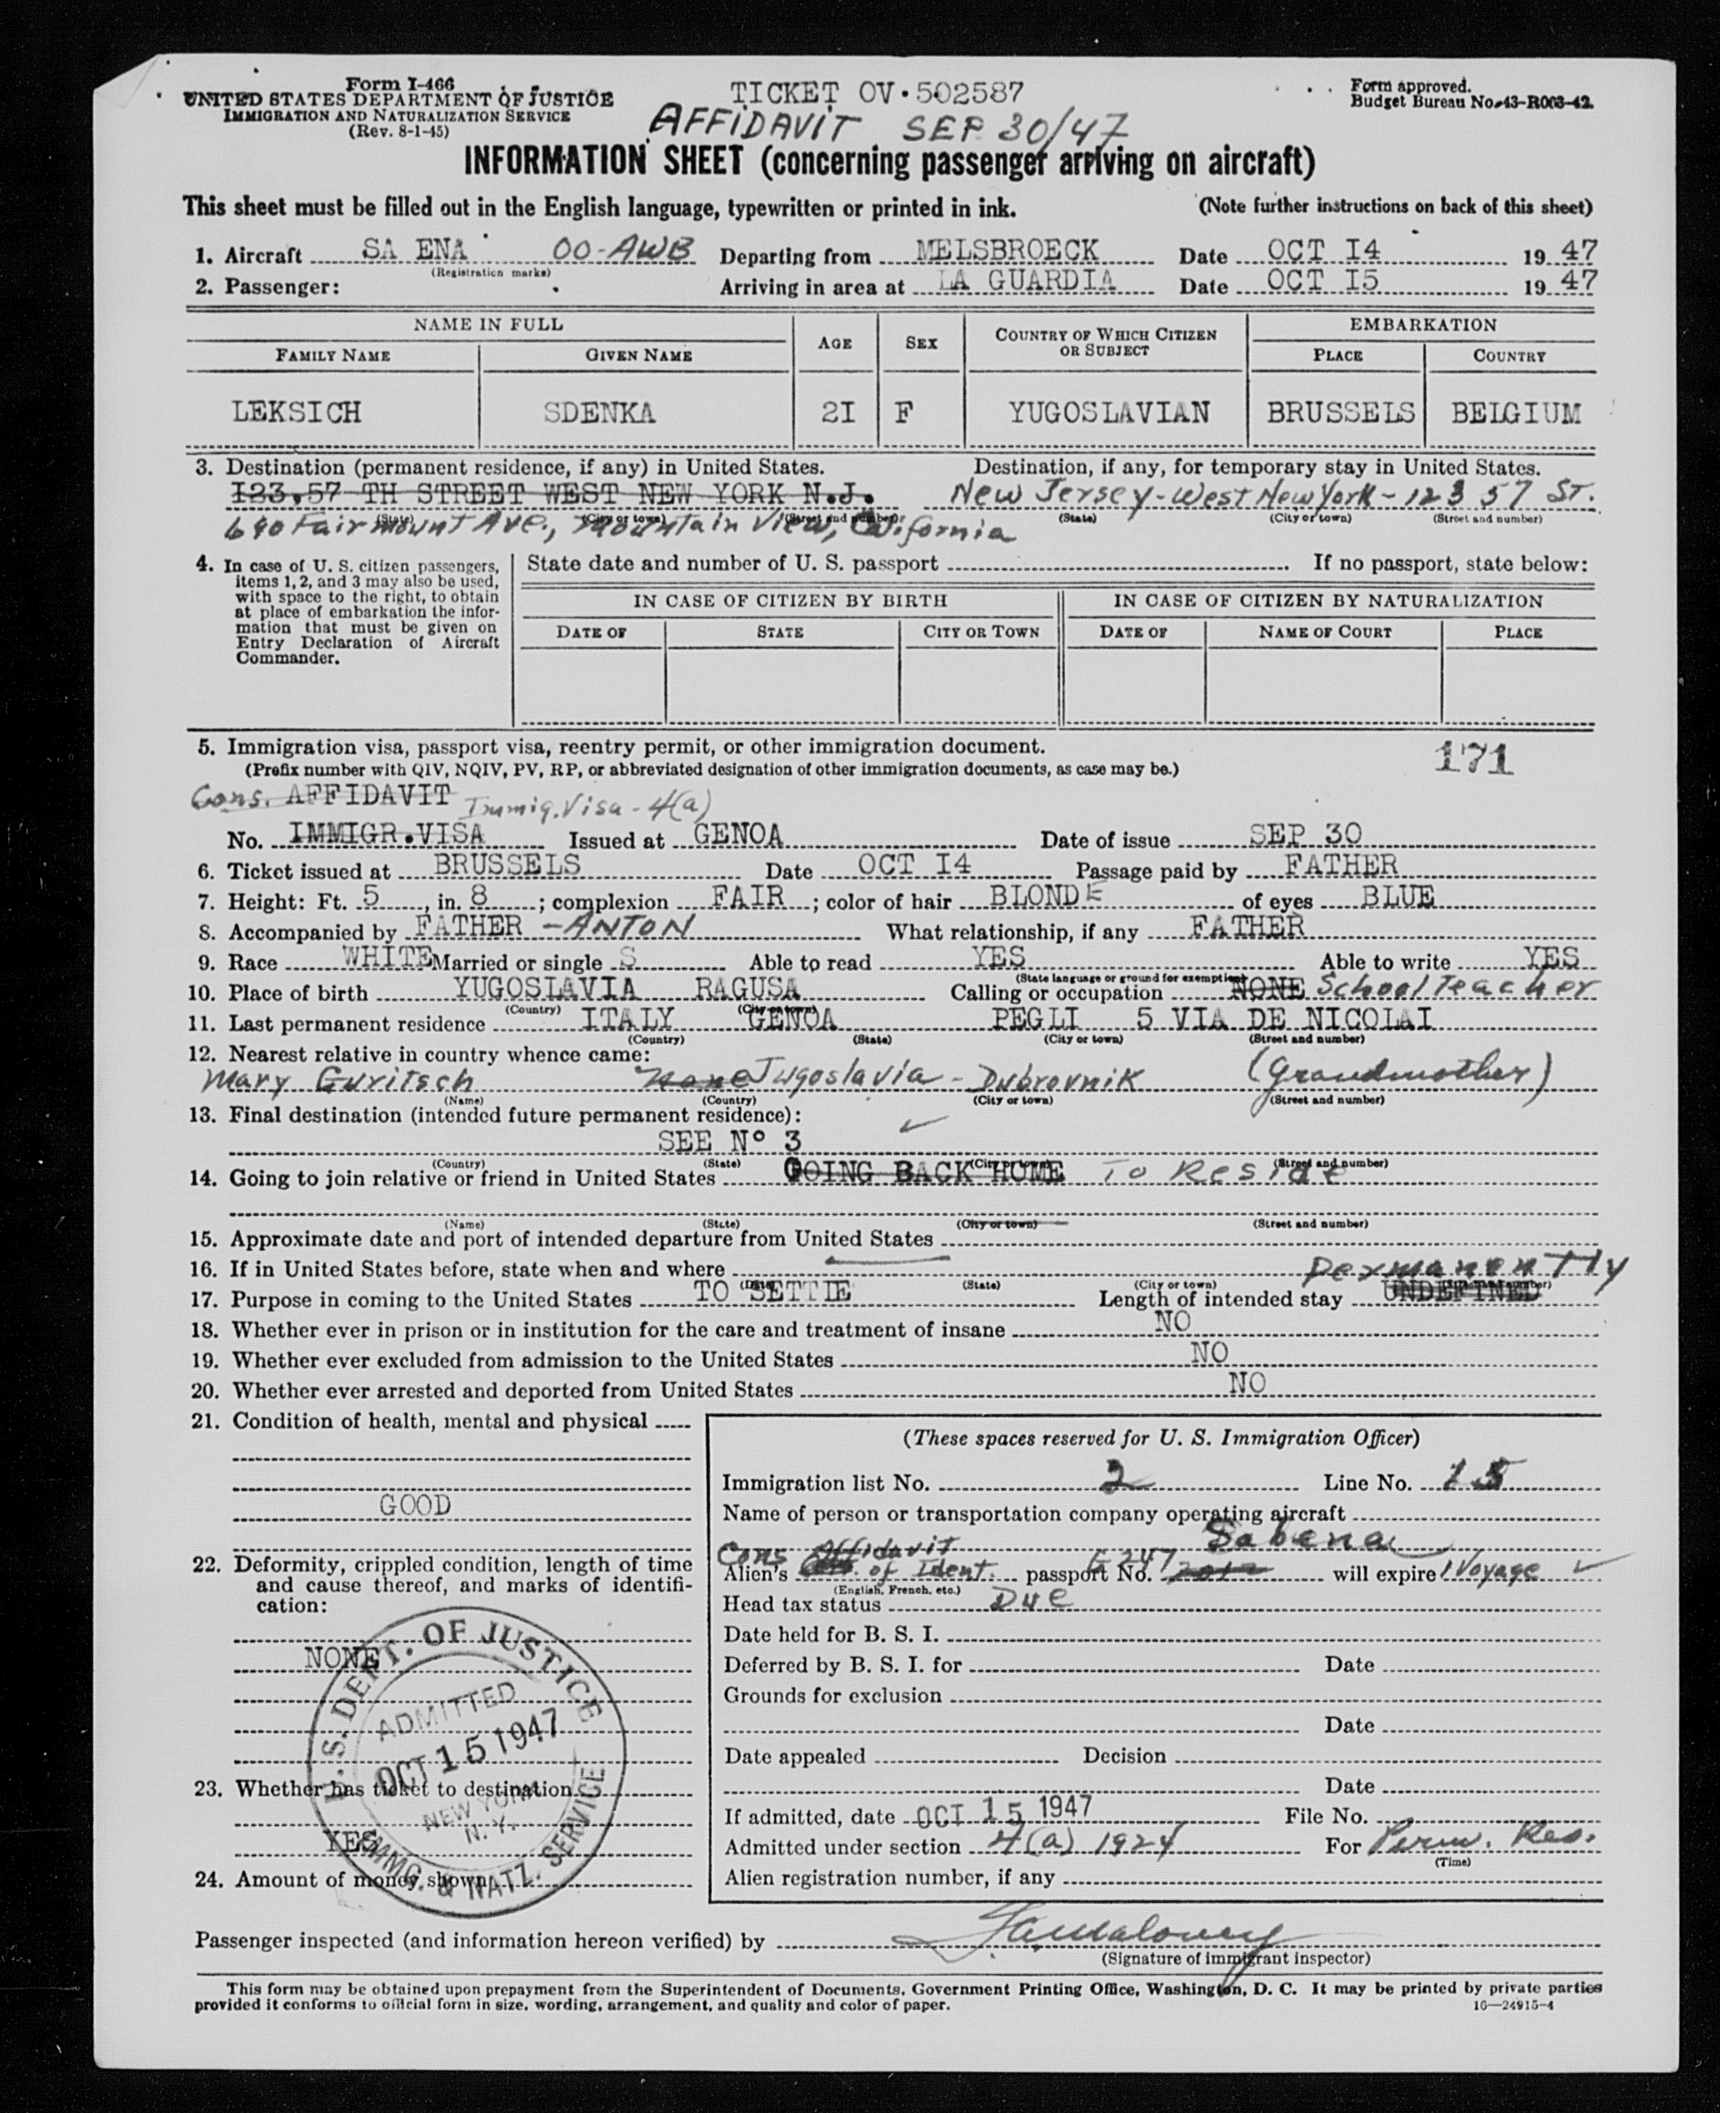 Form I-466
UNITED STATES DEPARTMENT OF JUSTICE
IMMIGRATION AND NATURALIZATION SERVICE
(Rev. 8-1-45)
TICKET OV.502587
AFFIDAVIT SEP 30/47
Form approved.
Budget Bureau No. 43-R003-42.
INFORMATION SHEET (concerning passenger arriving on aircraft)
This sheet must be filled out in the English language, typewritten or printed in ink. (Note further instructions on back of this sheet)
1. Aircraft SA ENA OO-AWB Departing from MELSBROECK Date OCT I4 1947
(Registration marks)
2. Passenger: Arriving in area at LA GUARDIA Date OCT I5 1947
NAME IN FULL AGE SEX COUNTRY OF WHICH CITIZEN OR SUBJECT EMBARKATION
FAMILY NAME GIVEN NAME PLACE COUNTRY
LEKSICH SDENKA 2I F YUGOSLAVIAN BRUSSELS BELGIUM
3. Destination (permanent residence, if any) in United States. Destination, if any, for temporary stay in United States.
I23.57 TH STREET WEST NEW YORK N.J. New Jersey - West New York - 123 57 St.
(State) (City or town) (Street and number) (State) (City or town) (Street and number)
690 Fairmount Ave., Mountain View, California
4. In case of U. S. citizen passengers, items 1, 2, and 3 may also be used, with space to the right, to obtain at place of embarkation the information that must be given on Entry Declaration of Aircraft Commander.
State date and number of U. S. passport If no passport, state below:
IN CASE OF CITIZEN BY BIRTH IN CASE OF CITIZEN BY NATURALIZATION
DATE OF STATE CITY OR TOWN DATE OF NAME OF COURT PLACE
5. Immigration visa, passport visa, reentry permit, or other immigration document. 171
(Prefix number with QIV, NQIV, PV, RP, or abbreviated designation of other immigration documents, as case may be.)
Cons. AFFIDAVIT Immig. Visa - 4(a)
No. IMMIGR.VISA Issued at GENOA Date of issue SEP 30
6. Ticket issued at BRUSSELS Date OCT I4 Passage paid by FATHER
7. Height: Ft. 5, in. 8; complexion FAIR; color of hair BLONDE of eyes BLUE
8. Accompanied by FATHER - ANTON What relationship, if any FATHER
9. Race WHITE Married or single S Able to read YES Able to write YES
(State language or ground for exemption)
10. Place of birth YUGOSLAVIA RAGUSA Calling or occupation NONE School Teacher
(Country) (City or town)
11. Last permanent residence ITALY GENOA PEGLI 5 VIA DE NICOLAI
(Country) (State) (City or town) (Street and number)
12. Nearest relative in country whence came:
Mary Guritsch None Jugoslavia - Dubrovnik (Grandmother)
(Name) (Country) (City or town) (Street and number)
13. Final destination (intended future permanent residence):
SEE N° 3
(Country) (State) (City or town) (Street and number)
14. Going to join relative or friend in United States GOING BACK HOME To Reside
(Name) (State) (City or town) (Street and number)
15. Approximate date and port of intended departure from United States
16. If in United States before, state when and where Permanently
(Date) (State) (City or town) (Street and number)
17. Purpose in coming to the United States TO SETTIE Length of intended stay UNDEFINED
18. Whether ever in prison or in institution for the care and treatment of insane NO
19. Whether ever excluded from admission to the United States NO
20. Whether ever arrested and deported from United States NO
21. Condition of health, mental and physical
GOOD
22. Deformity, crippled condition, length of time and cause thereof, and marks of identification:
NONE
U. S. DEPT. OF JUSTICE
ADMITTED
OCT 15 1947
NEW YORK
N. Y.
IMMG. & NATZ. SERVICE
23. Whether has ticket to destination
YES
24. Amount of money shown
(These spaces reserved for U. S. Immigration Officer)
Immigration list No. 2 Line No. 15
Name of person or transportation company operating aircraft
Sabena
Cons Affidavit
Alien's of Ident. passport No. G 247 will expire 1 Voyage
(English, French, etc.)
Head tax status Due
Date held for B. S. I.
Deferred by B. S. I. for Date
Grounds for exclusion
Date
Date appealed Decision
Date
If admitted, date OCT 15 1947 File No.
Admitted under section 4(a) 1924 For Perm. Res.
(Time)
Alien registration number, if any
Passenger inspected (and information hereon verified) by
(Signature of immigrant inspector)
This form may be obtained upon prepayment from the Superintendent of Documents, Government Printing Office, Washington, D. C. It may be printed by private parties
provided it conforms to official form in size, wording, arrangement, and quality and color of paper. 16—24915-4